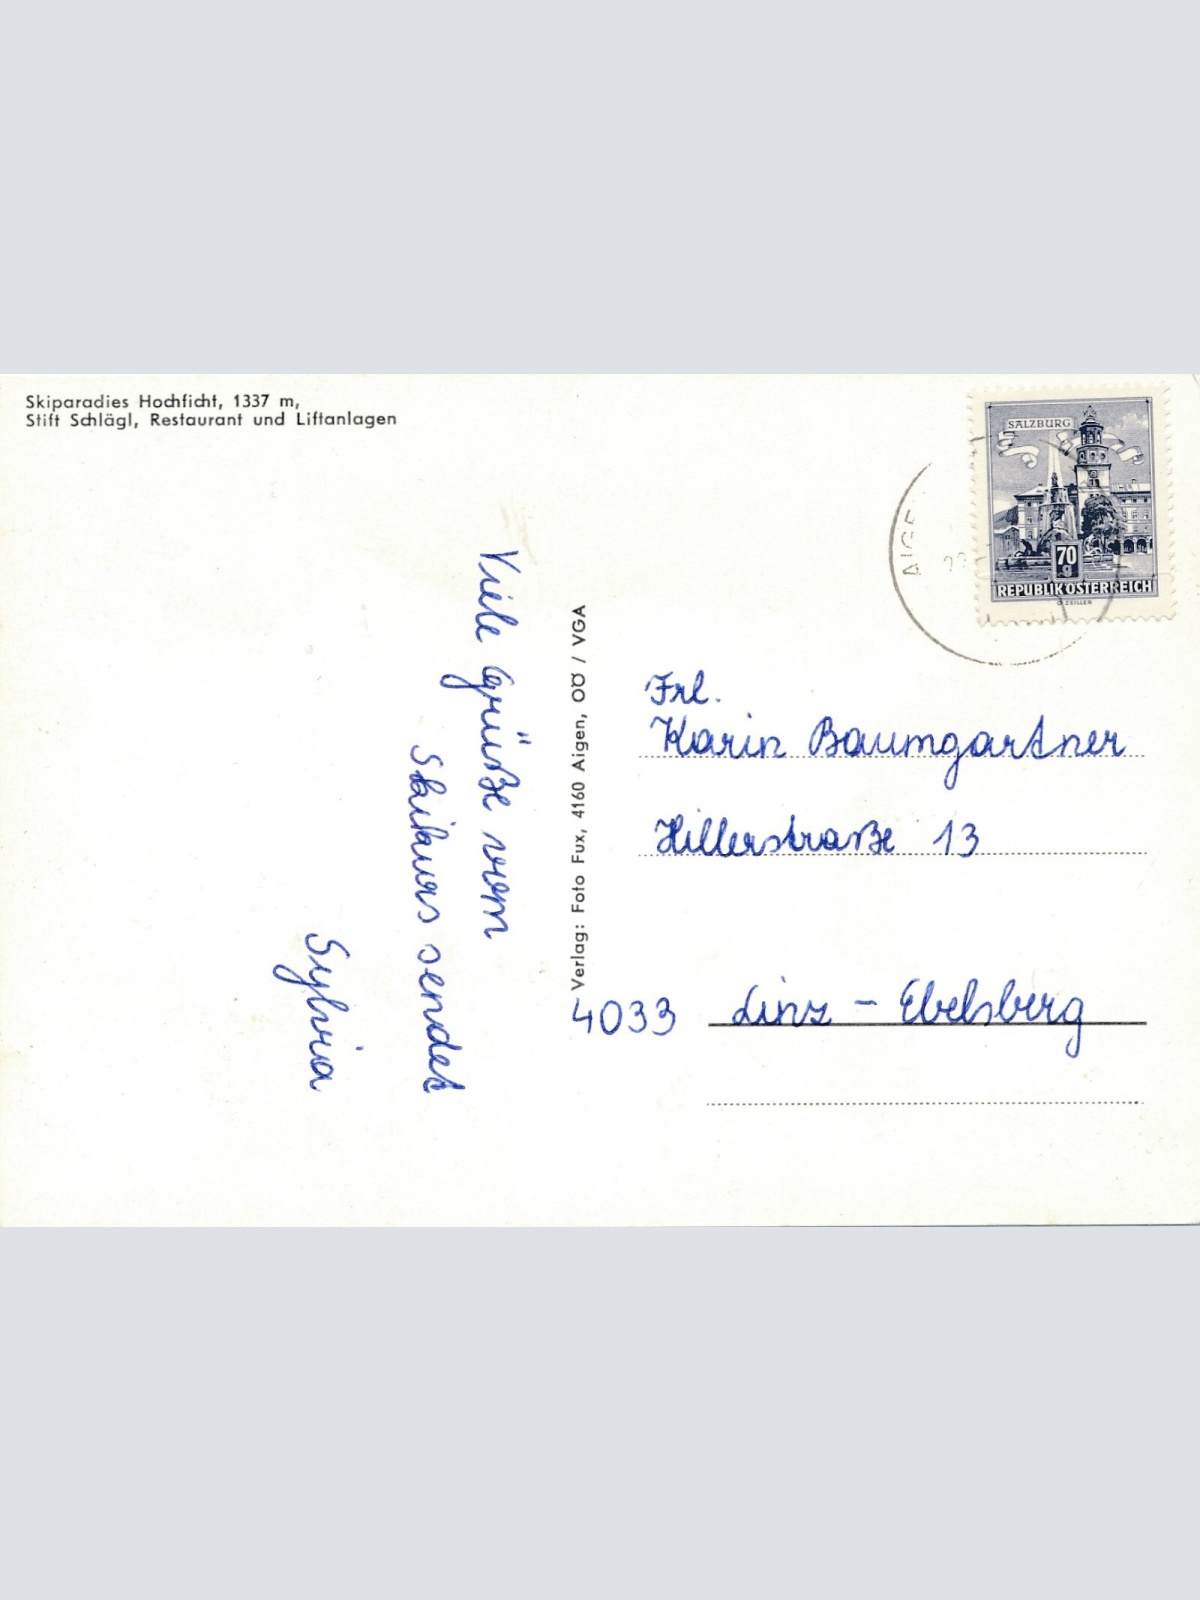 Skiparadies Hochficht, 1337 m,
Stift Schlägl, Restaurant und Liftanlagen
SALZBURG
70
g
REPUBLIK ÖSTERREICH
G. ZEILLER
Viele Grüße vom
Skikurs sendet
Sylvia
Verlag: Foto Fux, 4160 Aigen, OÖ / VGA
Frl.
Karin Baumgartner
Hillerstraße 13
4033 Linz - Ebelsberg